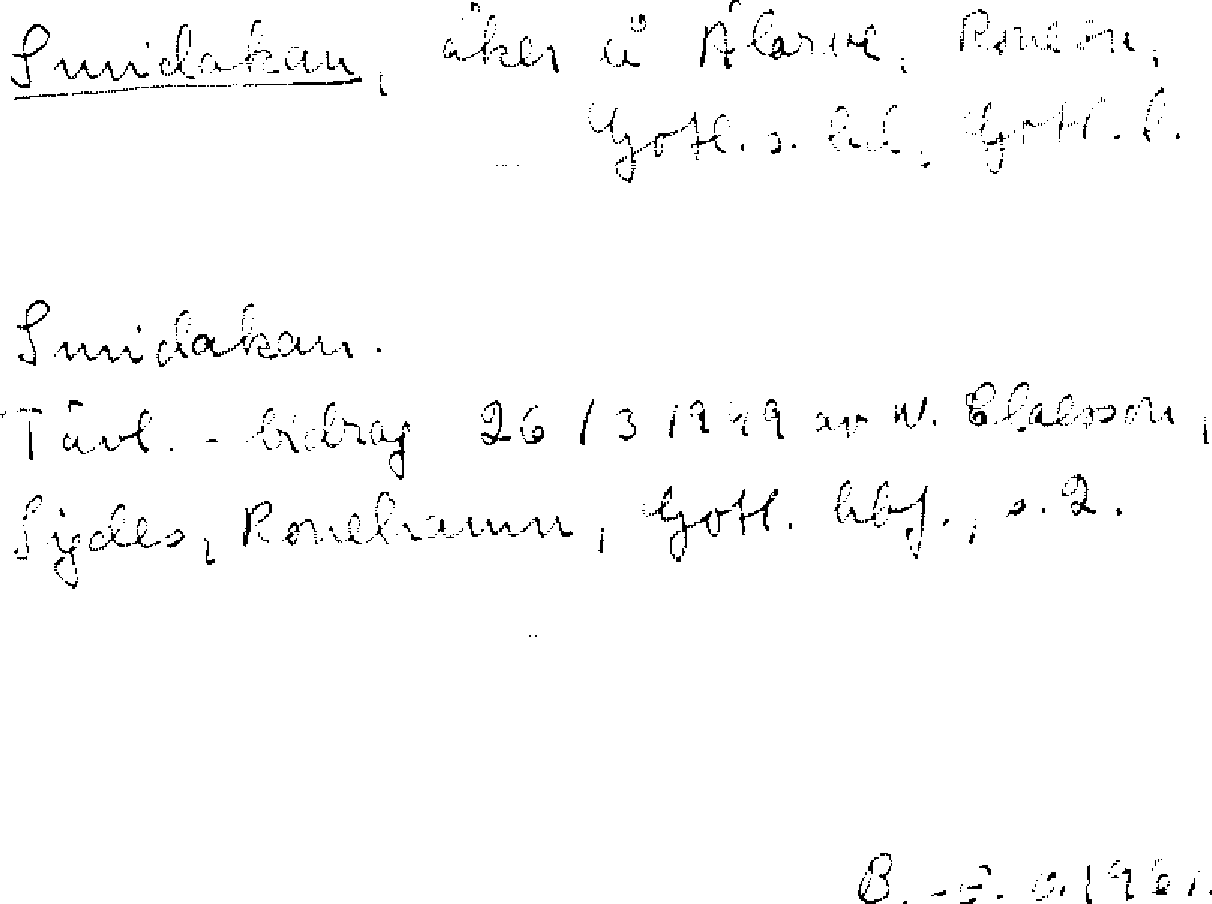 Smidakan, åker å Ålarve, Rone sn,
Gotl. s. hd, Gotl. l.
Smidakan.
Tävl.-bidrag 26/3 1949 av W. Claesson,
Sigdes, Ronehamn, Gotl. hbf., s. 2.
B.-E. O. 1961.